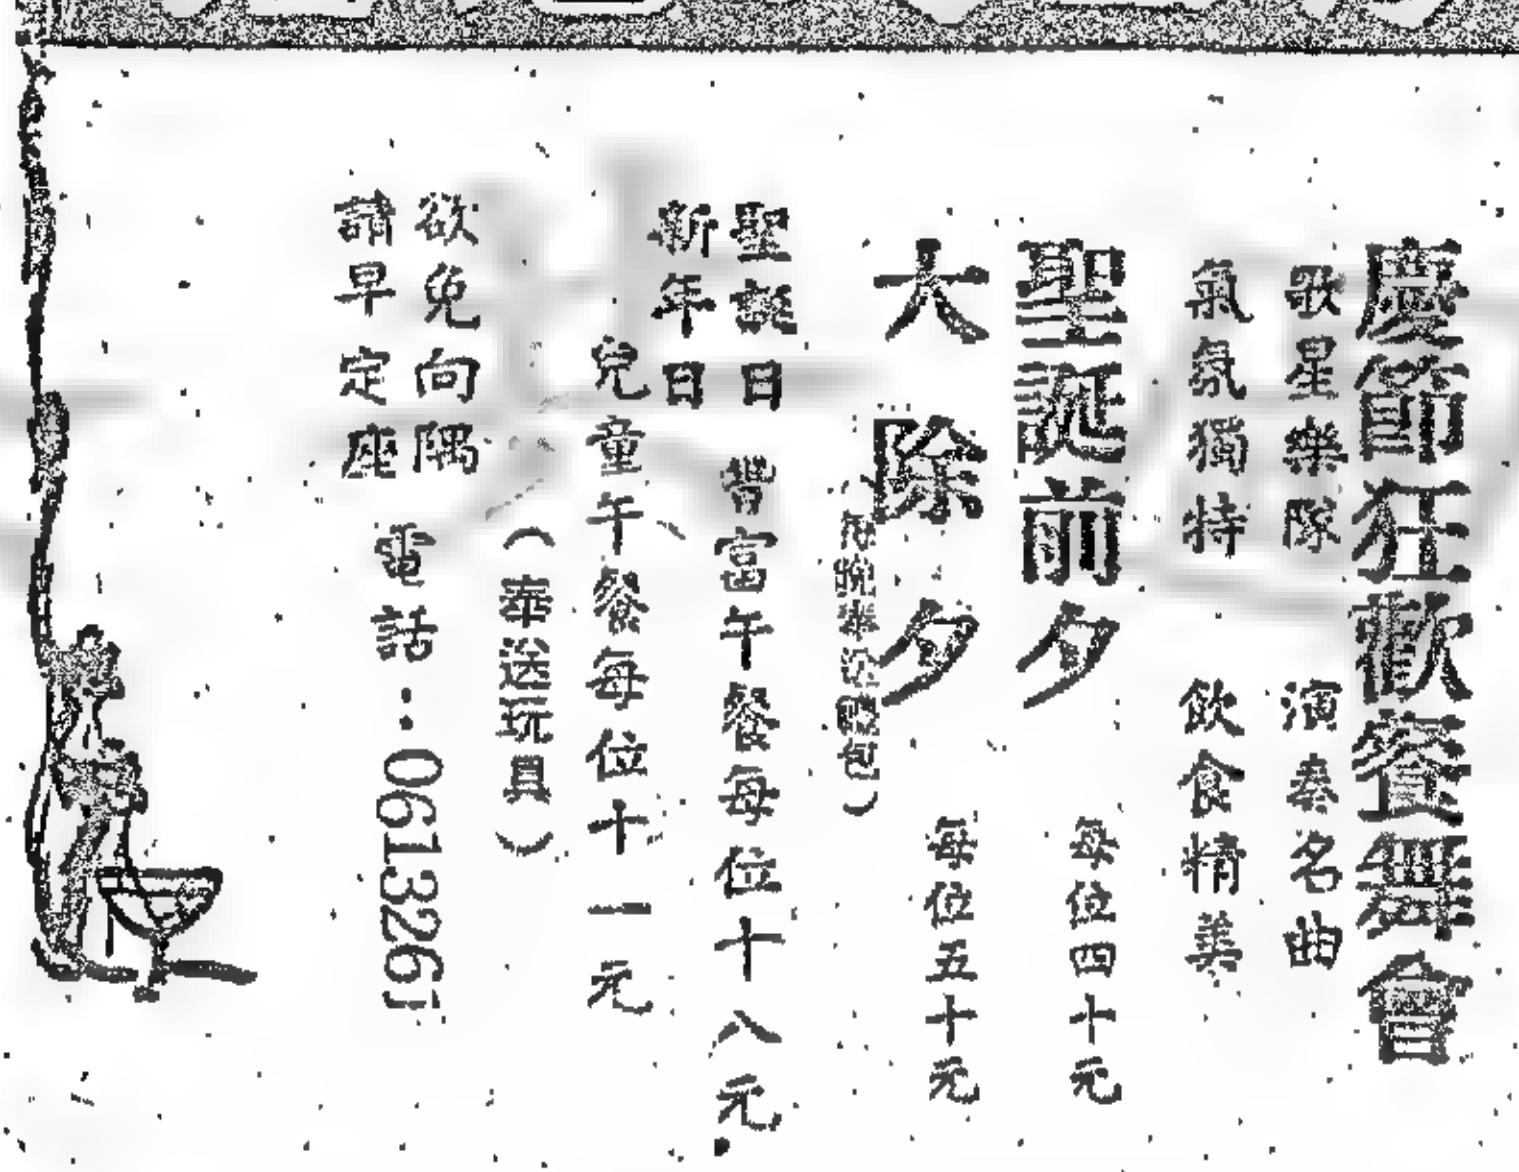 慶節狂歡餐舞會
歌星樂隊 演奏名曲
氣氛獨特 飲食精美
聖誕前夕 每位四十元
大除夕 每位五十元
聖誕日
新年日
豐富午餐每位十八元
兒童午餐每位十一元
(奉送玩具)
欲免向隅
請早定座
電話:0613261